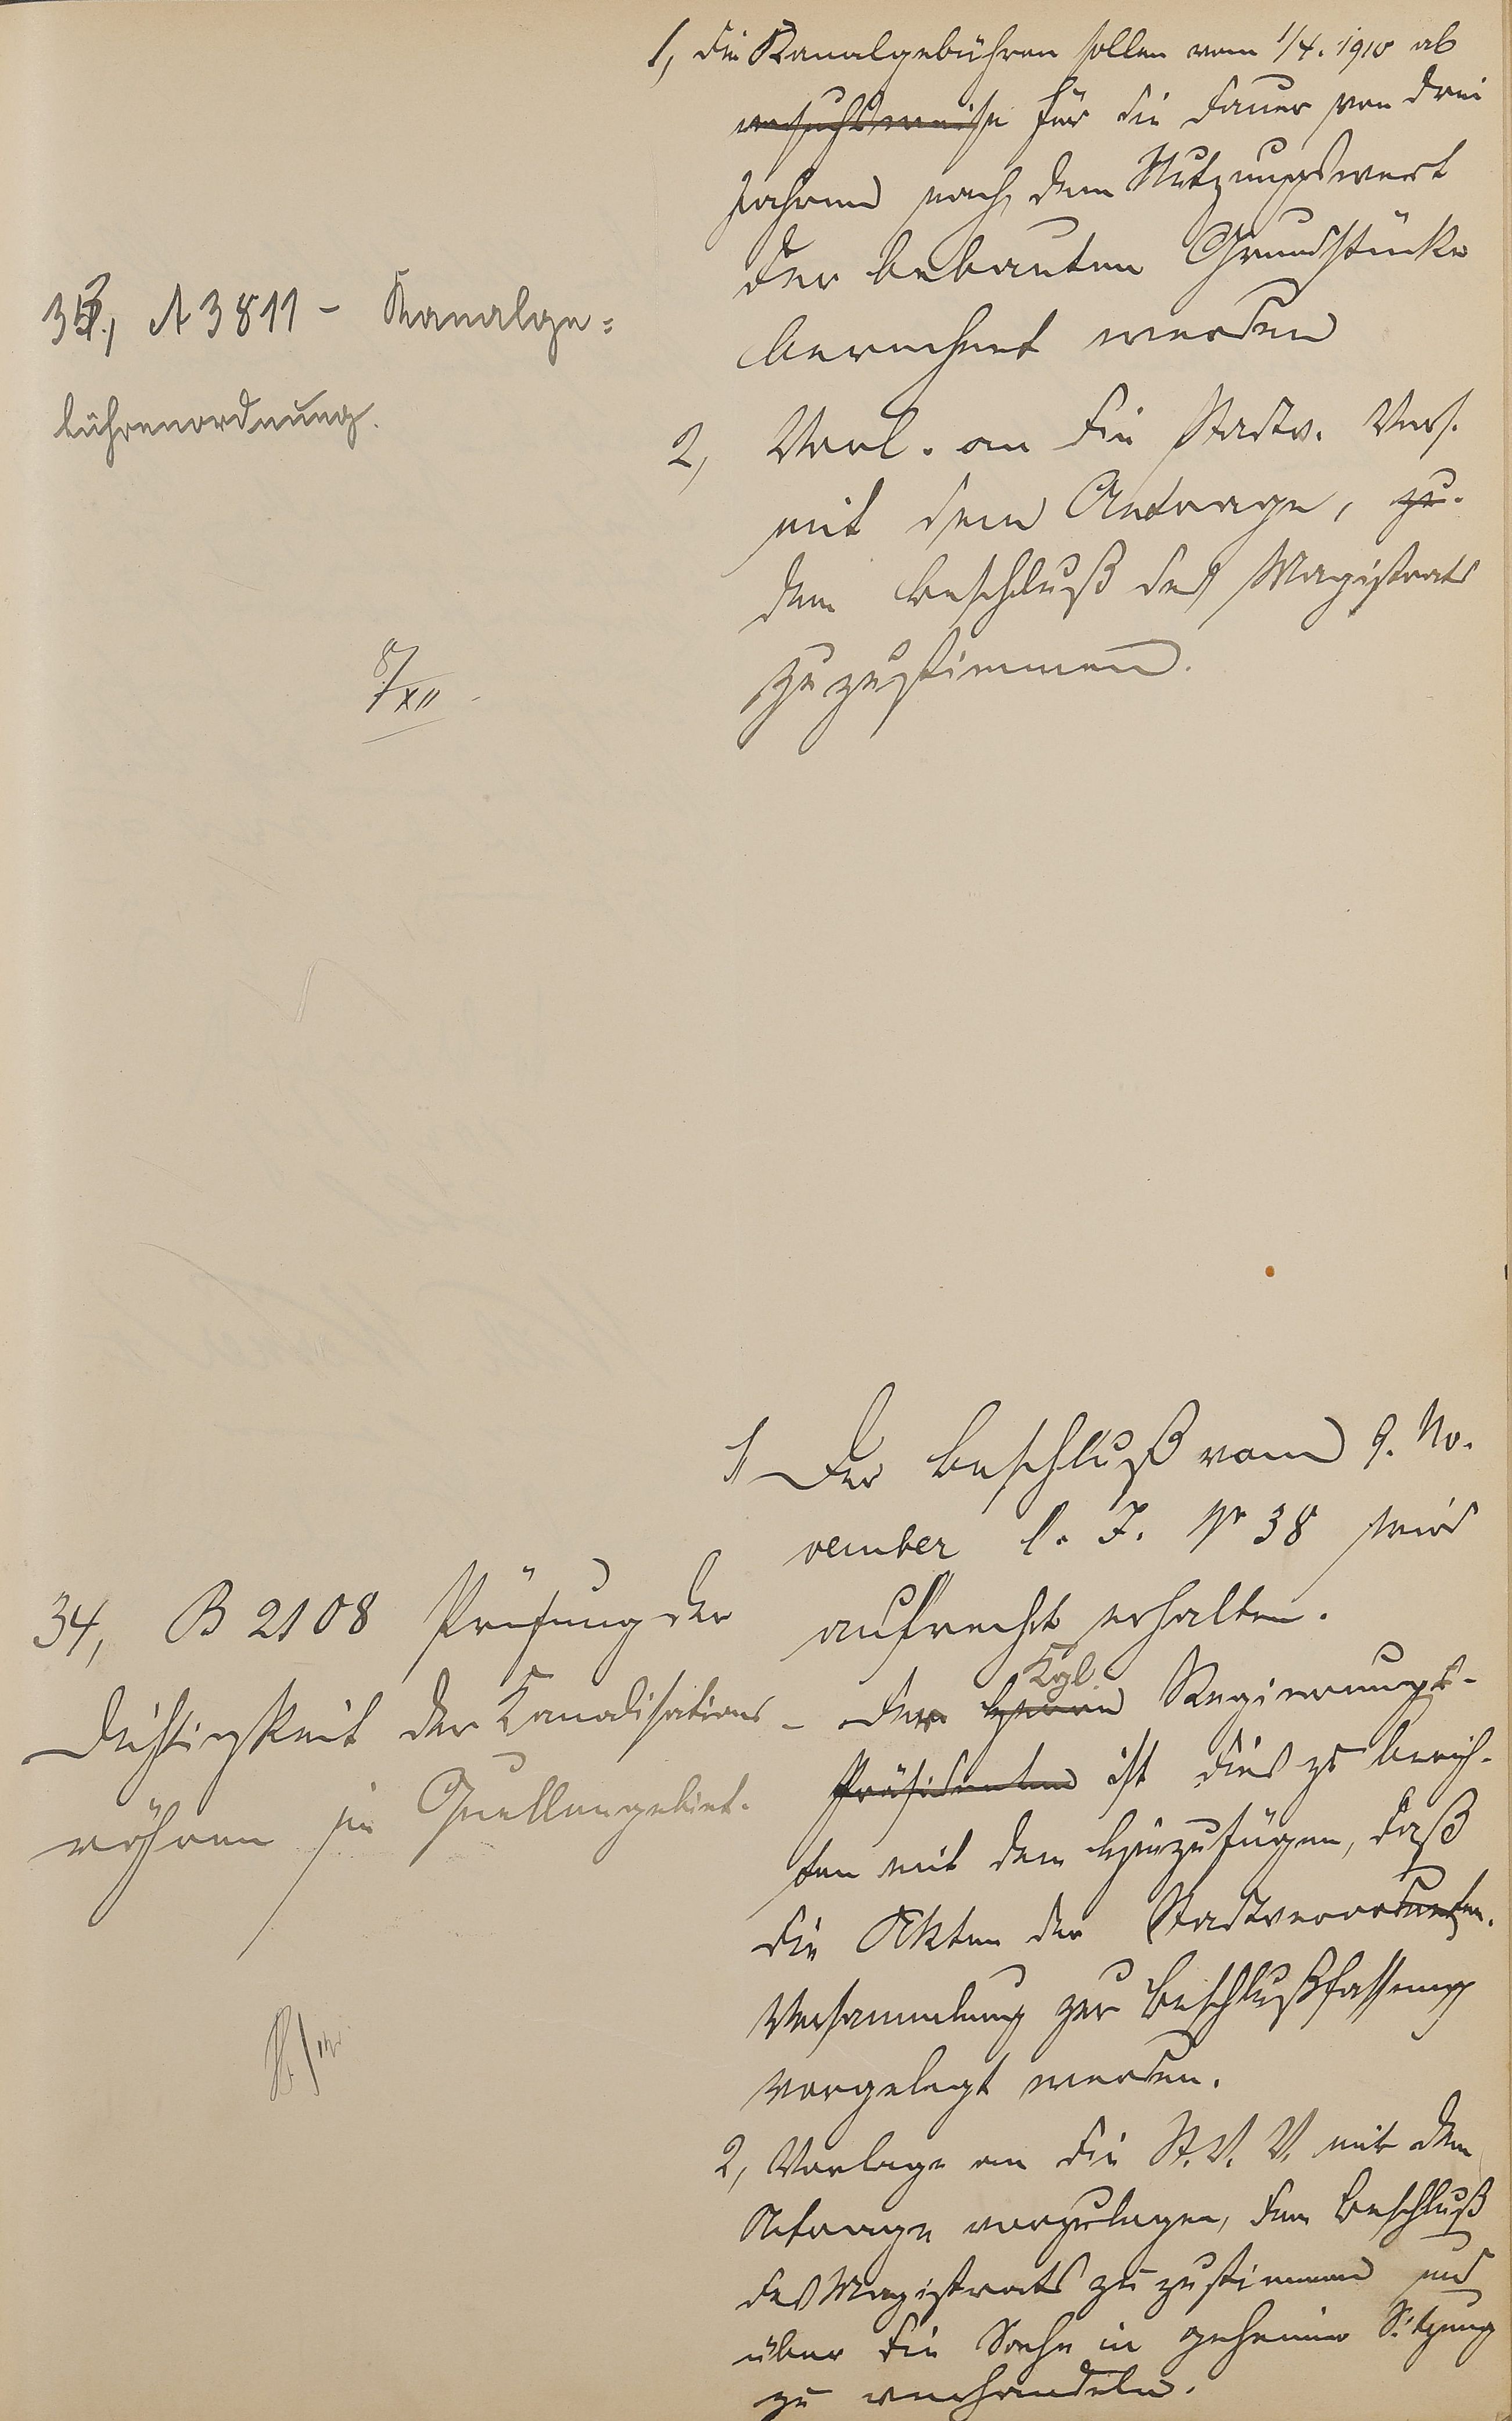 33, A 3811 - Kanalge=
bührenordnung.
8/XII
1, Die Kanalgebühren sollen vom 1/4. 1910 ab
versuchsweise für die Dauer von drei
Jahren nach dem Nutzungswert
der bebauten Grundstücke
berechnet werden
2, Vorl. an die Stadtv. Vers.
mit dem Antrage, zu
dem Beschluß des Magistrats
zuzustimmen.
34, B 2108 Prüfung der
Dichtigkeit der Kanalisations-
röhren im Quellengebiet.
1, Der Beschluß vom 9. No-
vember l. J. Nr 38 wird
aufrecht erhalten.
Kgl.
Der Herrn Regierungs-
Präsidenten ist dies zu berich-
ten mit dem Hinzufügen, daß
die Akten der Stadtverordneten-
Versammlung zur Beschlußfassung
vorgelegt werden.
2, Vorlage an die St. V. V. mit dem
Antrage vorzulegen, dem Beschluß
des Magistrats zuzustimmen und
über die Sache in geheimer Sitzung
zu verhandeln.